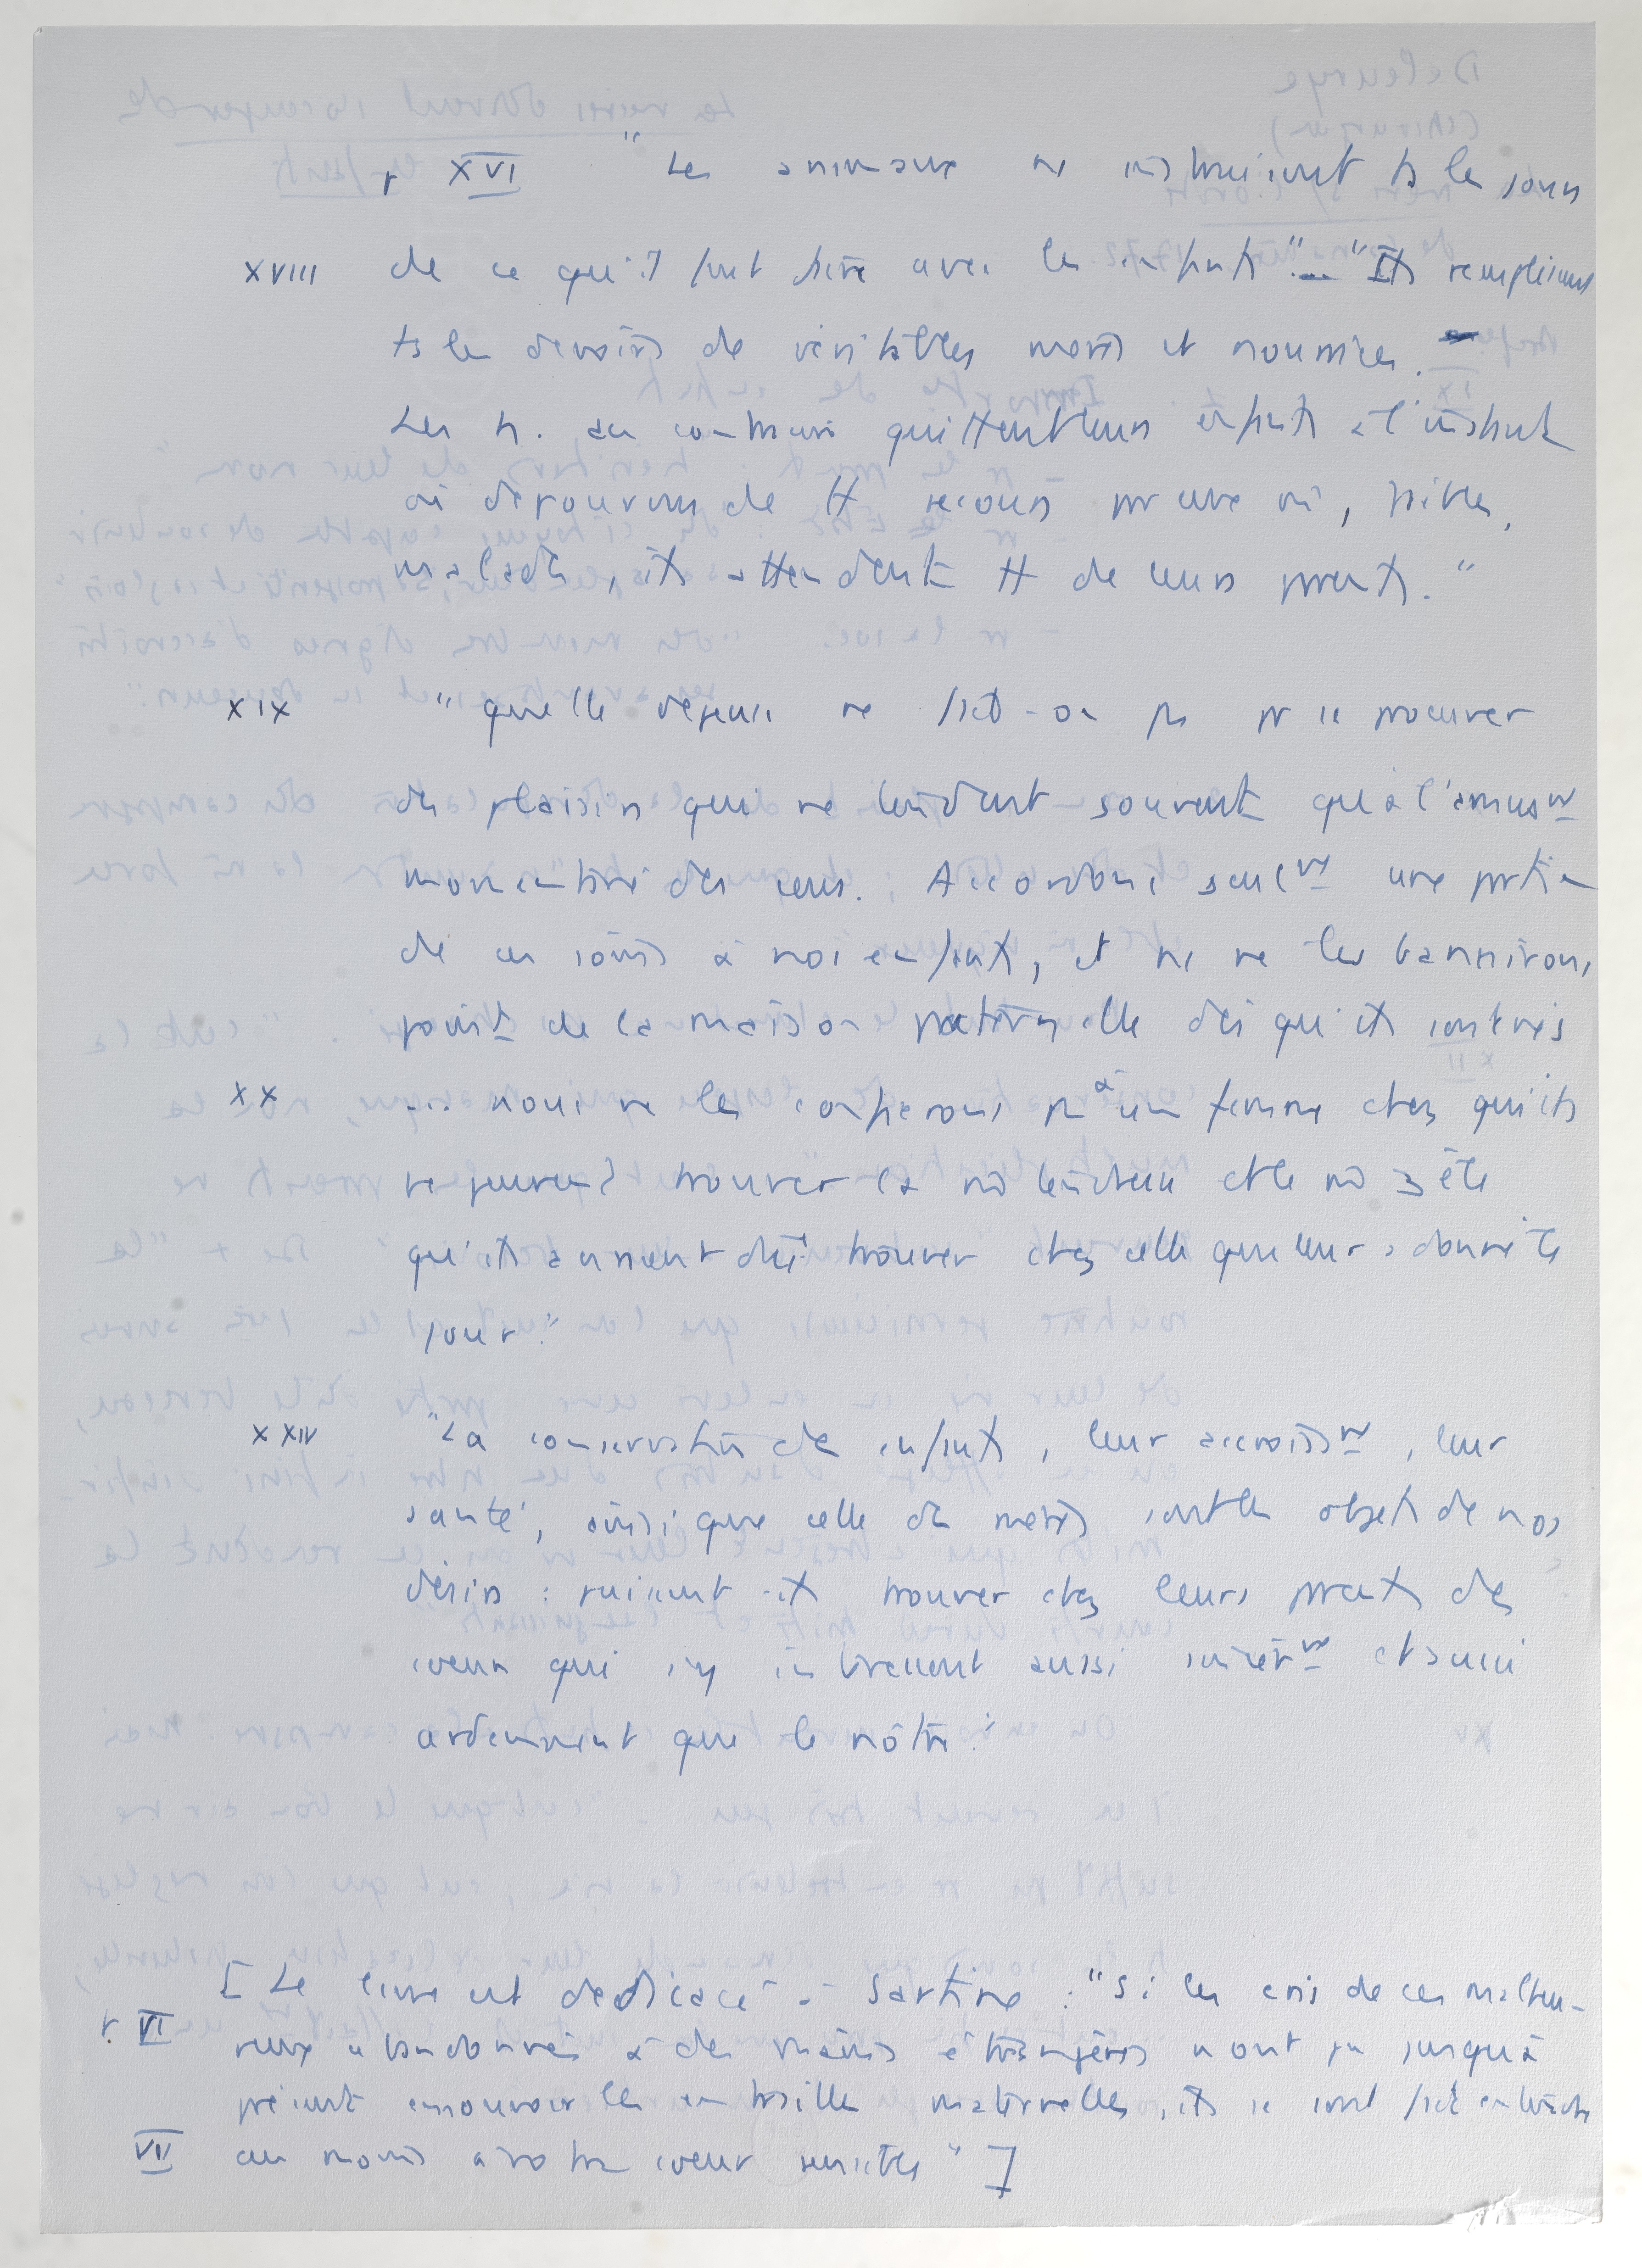 r XVI "Les animaux ns instruisent ts les jours
XVIII de ce qu'il faut faire avec les enfants" ... "Ils remplissent
ts les devoirs de véritables mères et nourrices.
Les h. au contraire quittent leurs enfants à l'instant
où dépourvus de tt secours par eux m̂, faibles,
malades, ils attendent tt de leurs parents."
XIX "quelle dépense ne fait-on pas pr se procurer
des plaisirs qui ne tendent souvent qu'à l'amusnt
momentané des sens. Accordons seulnt une partie
de ces soins à nos enfants, et ns ne les bannirons
point de la maison paternelle dès qu'ils sont nés
XX ... nous ne les confierons pas à une femme chez qui ils
ne peuvent trouver la m̂ tendresse et le m̂ zèle
qu'ils auraient dû trouver chez celle qui leur a donné le
jour."
XXIV "La conservation des enfants, leur accroissnt, leur
santé, ainsi que celle des mères sont les objets de nos
désirs : puissent-ils trouver chez leurs parents des
coeurs qui s'y intéressent aussi sincèrnt et aussi
ardemment que le nôtre."
[Le livre est dédicacé à Sartine : "Si les cris de ces malheu-
r. VI reux abandonnés à des mains étrangères n'ont pu jusqu'à
présent émouvoir les entrailles maternelles, ils se sont fait entendre
VII au moins à votre coeur sensible"]